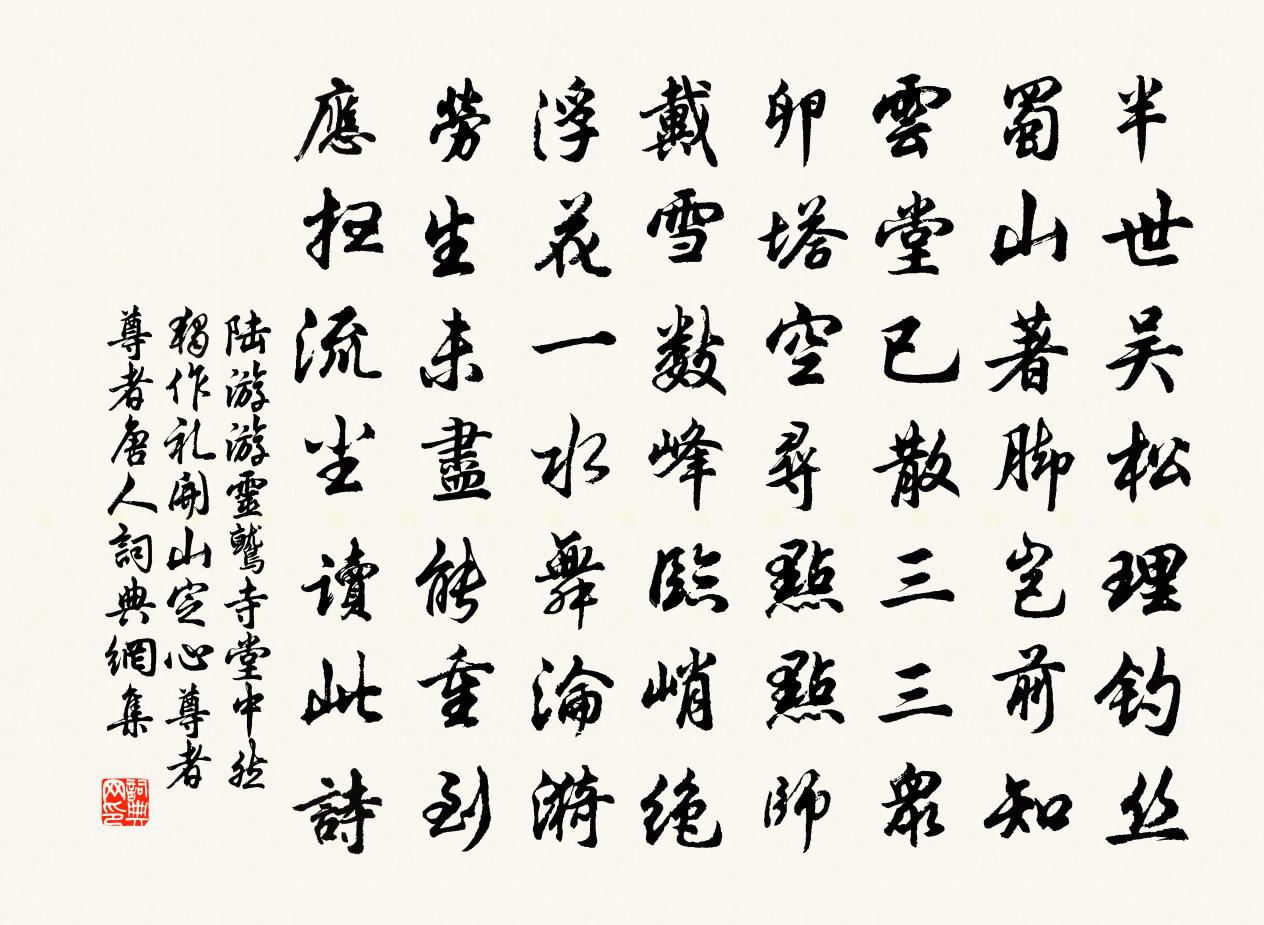 半世吴松理钓丝
蜀山著脚岂前知
雲堂已散三三衆
卵塔空尋點點師
戴雪數峰臨峭絶
浮花一水舞淪漪
勞生未盡能重到
應拂流尘讀此詩
陆游游靈鷲寺堂中然
獨作礼開山定心尊者
尊者唐人詞典網集
詞典网印